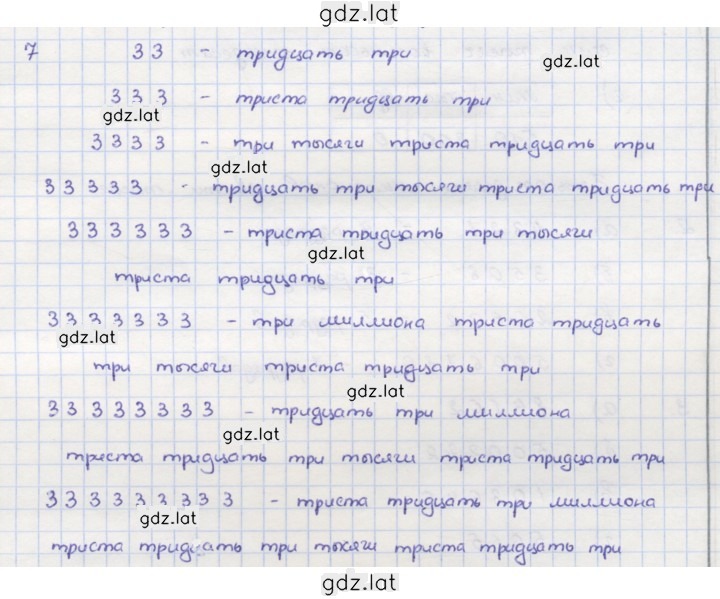 gdz.lat
7 33 - тридцать три
gdz.lat
333 - триста тридцать три
gdz.lat
3333 - три тысячи триста тридцать три
gdz.lat
33333 - тридцать три тысячи триста тридцать три
333333 - триста тридцать три тысячи
gdz.lat
триста тридцать три
3333333 - три миллиона триста тридцать
gdz.lat
три тысячи триста тридцать три
gdz.lat
33333333 - тридцать три миллиона
gdz.lat
триста тридцать три тысячи триста тридцать три
333333333 - триста тридцать три миллиона
gdz.lat
триста тридцать три тысячи триста тридцать три
gdz.lat